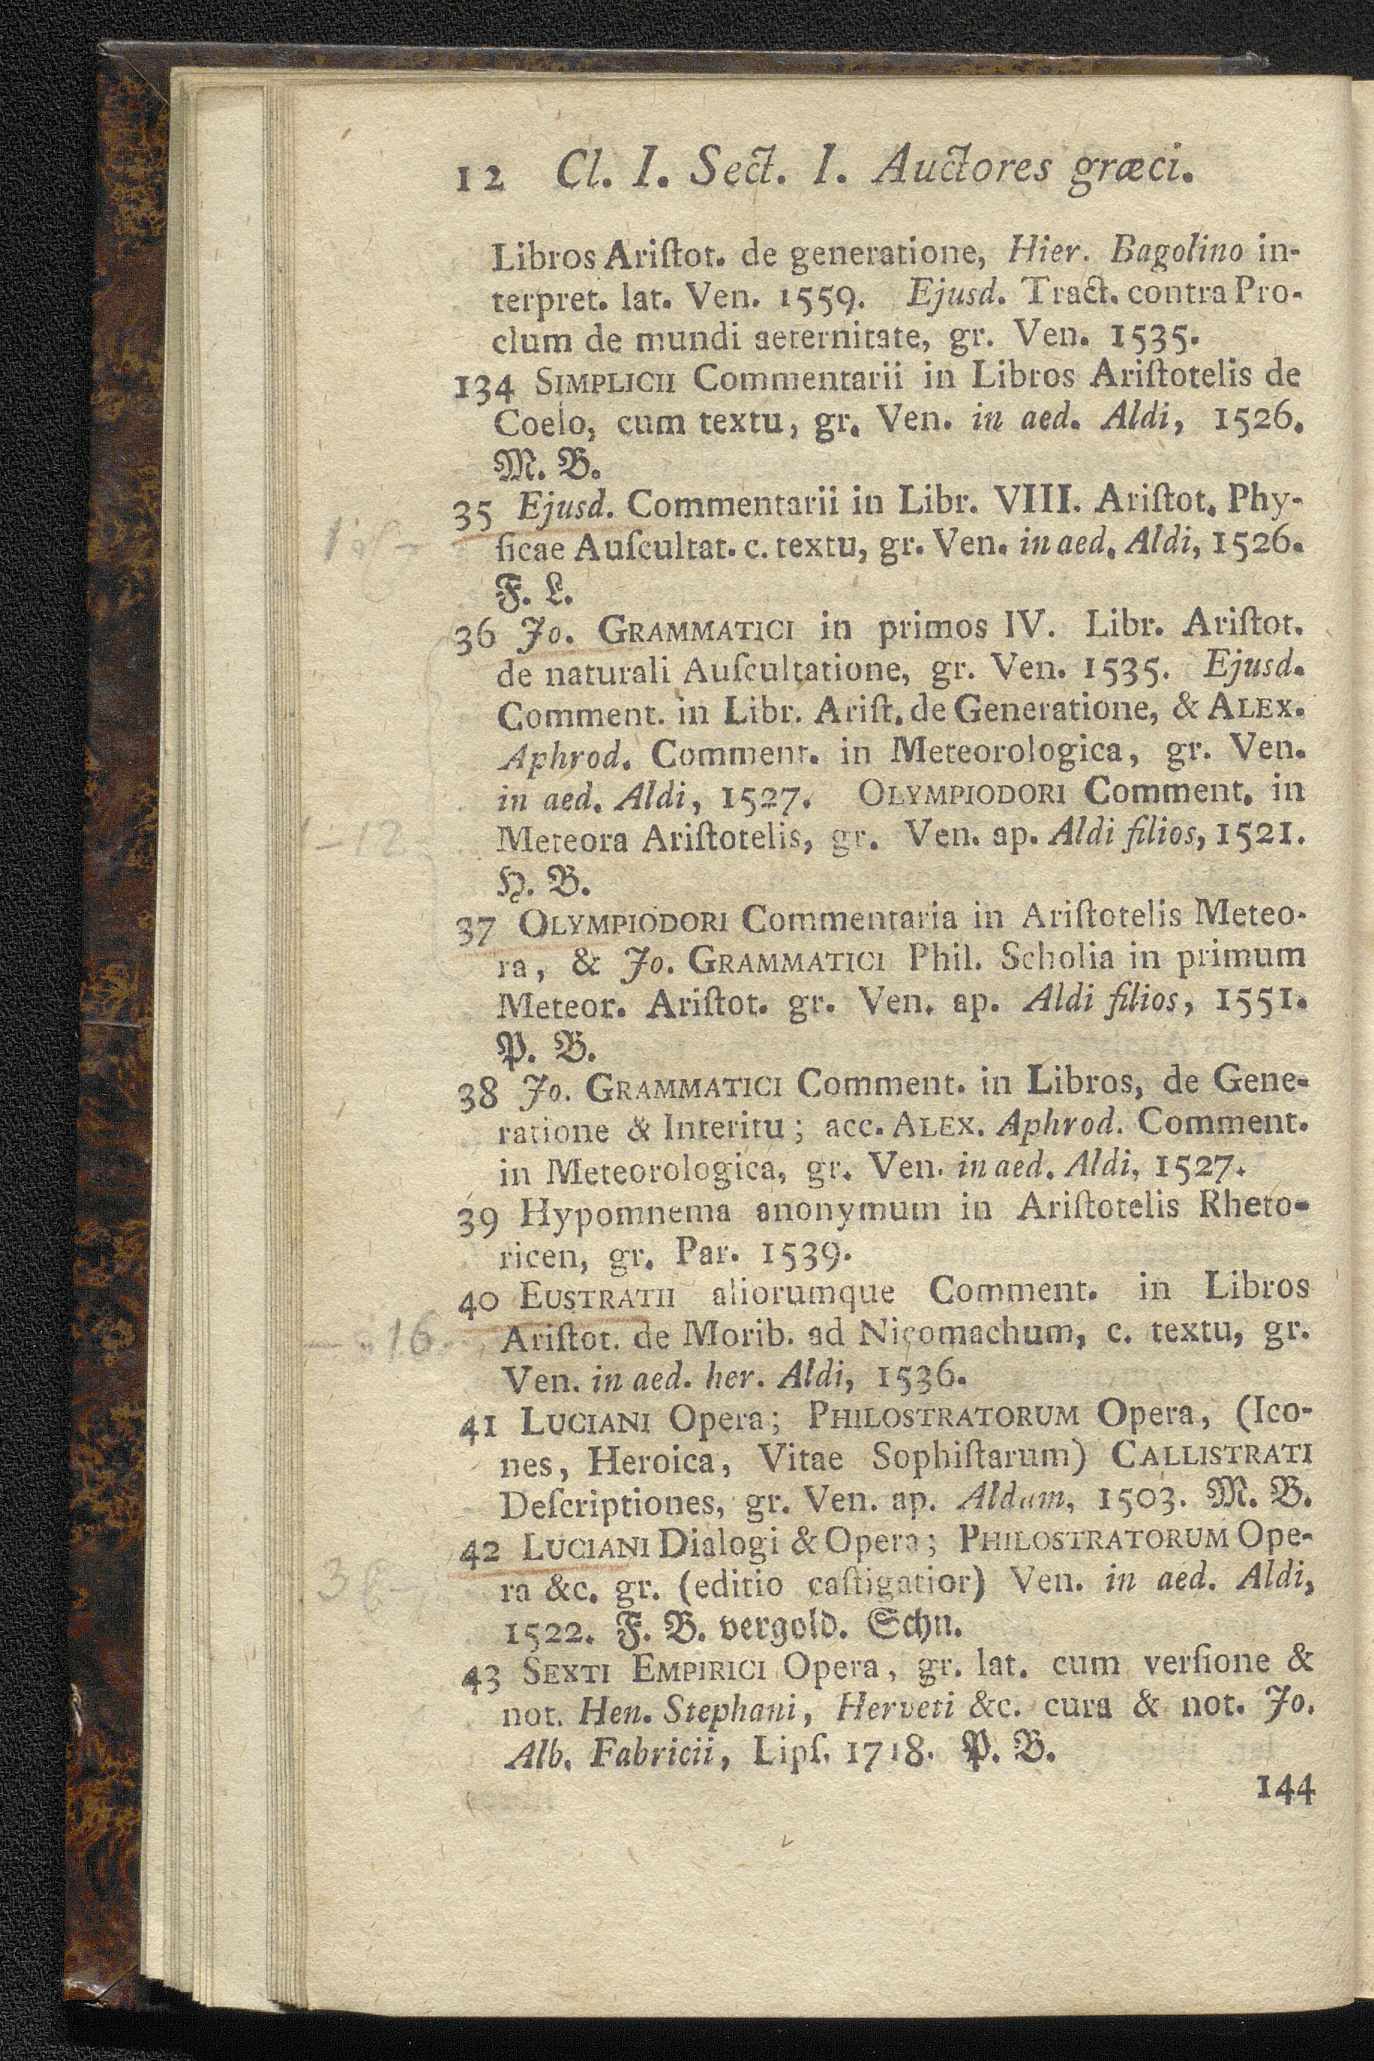 12 Cl. I. Sect. I. Auctores græci.
Libros Ariſtot. de generatione, Hier. Bagolino in-
terpret. lat. Ven. 1559. Ejusd. Tract. contra Pro-
clum de mundi aeternitate, gr. Ven. 1535.
134 SIMPLICII Commentarii in Libros Ariſtotelis de
Coelo, cum textu, gr. Ven. in aed. Aldi, 1526.
M. B.
35 Ejusd. Commentarii in Libr. VIII. Ariſtot. Phy-
ſicae Auſcultat. c. textu, gr. Ven. in aed. Aldi, 1526.
F. L.
36 Jo. GRAMMATICI in primos IV. Libr. Ariſtot.
de naturali Auſcultatione, gr. Ven. 1535. Ejusd.
Comment. in Libr. Ariſt. de Generatione, & ALEX.
Aphrod. Comment. in Meteorologica, gr. Ven.
in aed. Aldi, 1527. OLYMPIODORI Comment. in
– 12
Meteora Ariſtotelis, gr. Ven. ap. Aldi filios, 1521.
H. B.
37 OLYMPIODORI Commentaria in Ariſtotelis Meteo-
ra, & Jo. GRAMMATICI Phil. Scholia in primum
Meteor. Ariſtot. gr. Ven. ap. Aldi filios, 1551.
P. B.
38 Jo. GRAMMATICI Comment. in Libros, de Gene-
ratione & Interitu; acc. ALEX. Aphrod. Comment.
in Meteorologica, gr. Ven. in aed. Aldi, 1527.
39 Hypomnema anonymum in Ariſtotelis Rheto-
ricen, gr. Par. 1539.
40 EUSTRATII aliorumque Comment. in Libros
16
Ariſtot. de Morib. ad Nicomachum, c. textu, gr.
Ven. in aed. her. Aldi, 1536.
41 LUCIANI Opera; PHILOSTRATORUM Opera, (Ico-
nes, Heroica, Vitae Sophiſtarum) CALLISTRATI
Deſcriptiones, gr. Ven. ap. Aldum, 1503. M. B.
42 LUCIANI Dialogi & Opera; PHILOSTRATORUM Ope-
ra &c. gr. (editio caſtigatior) Ven. in aed. Aldi,
1522. F. B. vergold. Schn.
43 SEXTI EMPIRICI Opera, gr. lat. cum verſione &
not. Hen. Stephani, Herveti &c. cura & not. Jo.
Alb. Fabricii, Lipſ. 1718. P. B.
144